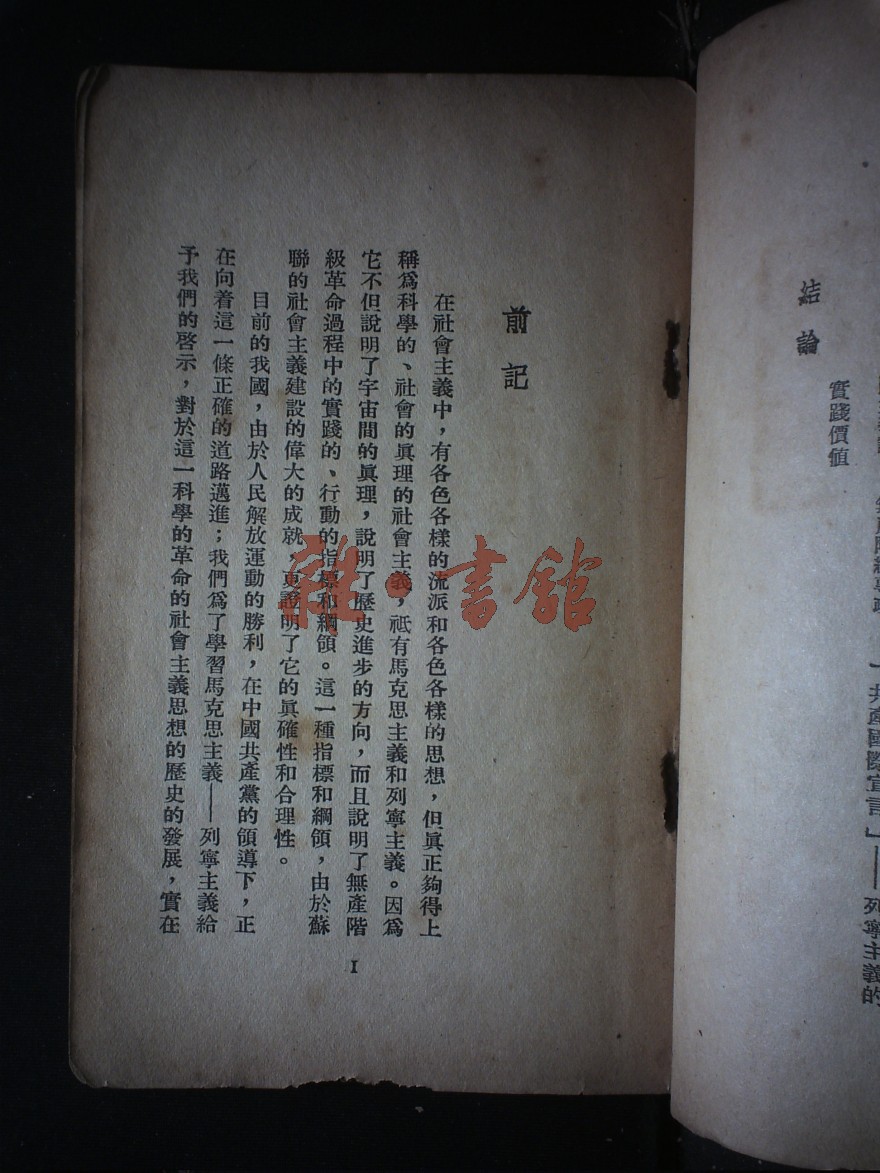 結論
實踐價值
「共產國際宣言」——列寧主義的
前記
在社會主義中，有各色各樣的流派和各色各樣的思想，但眞正夠得上
稱爲科學的、社會的眞理的社會主義，祇有馬克思主義和列寧主義。因爲
它不但說明了宇宙間的眞理，說明了歷史進步的方向，而且說明了無產階
級革命過程中的實踐的、行動的指標和綱領。這一種指標和綱領，由於蘇
聯的社會主義建設的偉大的成就，更證明了它的眞確性和合理性。
目前的我國，由於人民解放運動的勝利，在中國共產黨的領導下，正
在向着這一條正確的道路邁進；我們爲了學習馬克思主義——列寧主義給
予我們的啓示，對於這一科學的革命的社會主義思想的歷史的發展，實在
I
雜·書館